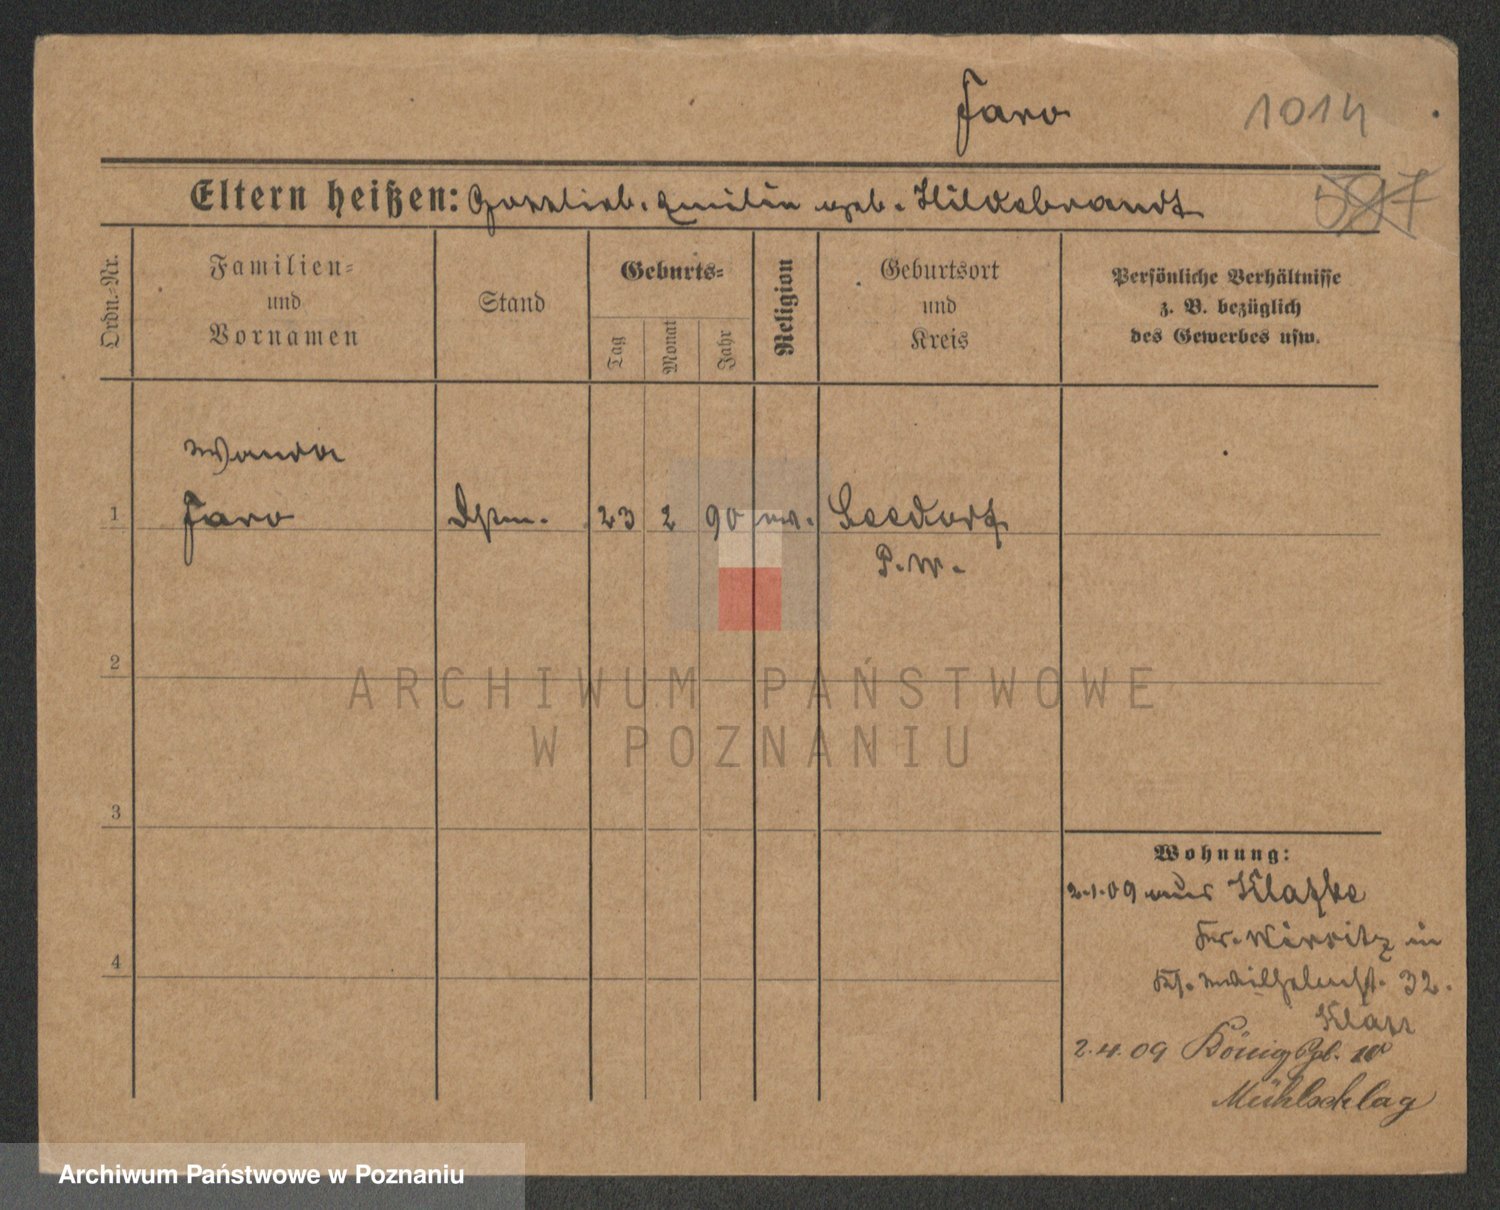 Faro 1014
Eltern heißen: Gottlieb. Emilie geb. Hildebrandt 597
Ordn.-Nr.
Familien- und Vornamen
Stand
Geburts-
Tag
Monat
Jahr
Religion
Geburtsort und Kreis
Persönliche Verhältnisse
z. B. bezüglich
des Gewerbes usw.
Wanda
1 Faro 23 2 90 ev. Seedorf
P. W.
2
ARCHIWUM PAŃSTWOWE
W POZNANIU
3
Wohnung:
2.1.09 aus
Kr. Wirsitz in
32.
4
2.4.09 Königpl. 10
Mühlschlag
Archiwum Państwowe w Poznaniu